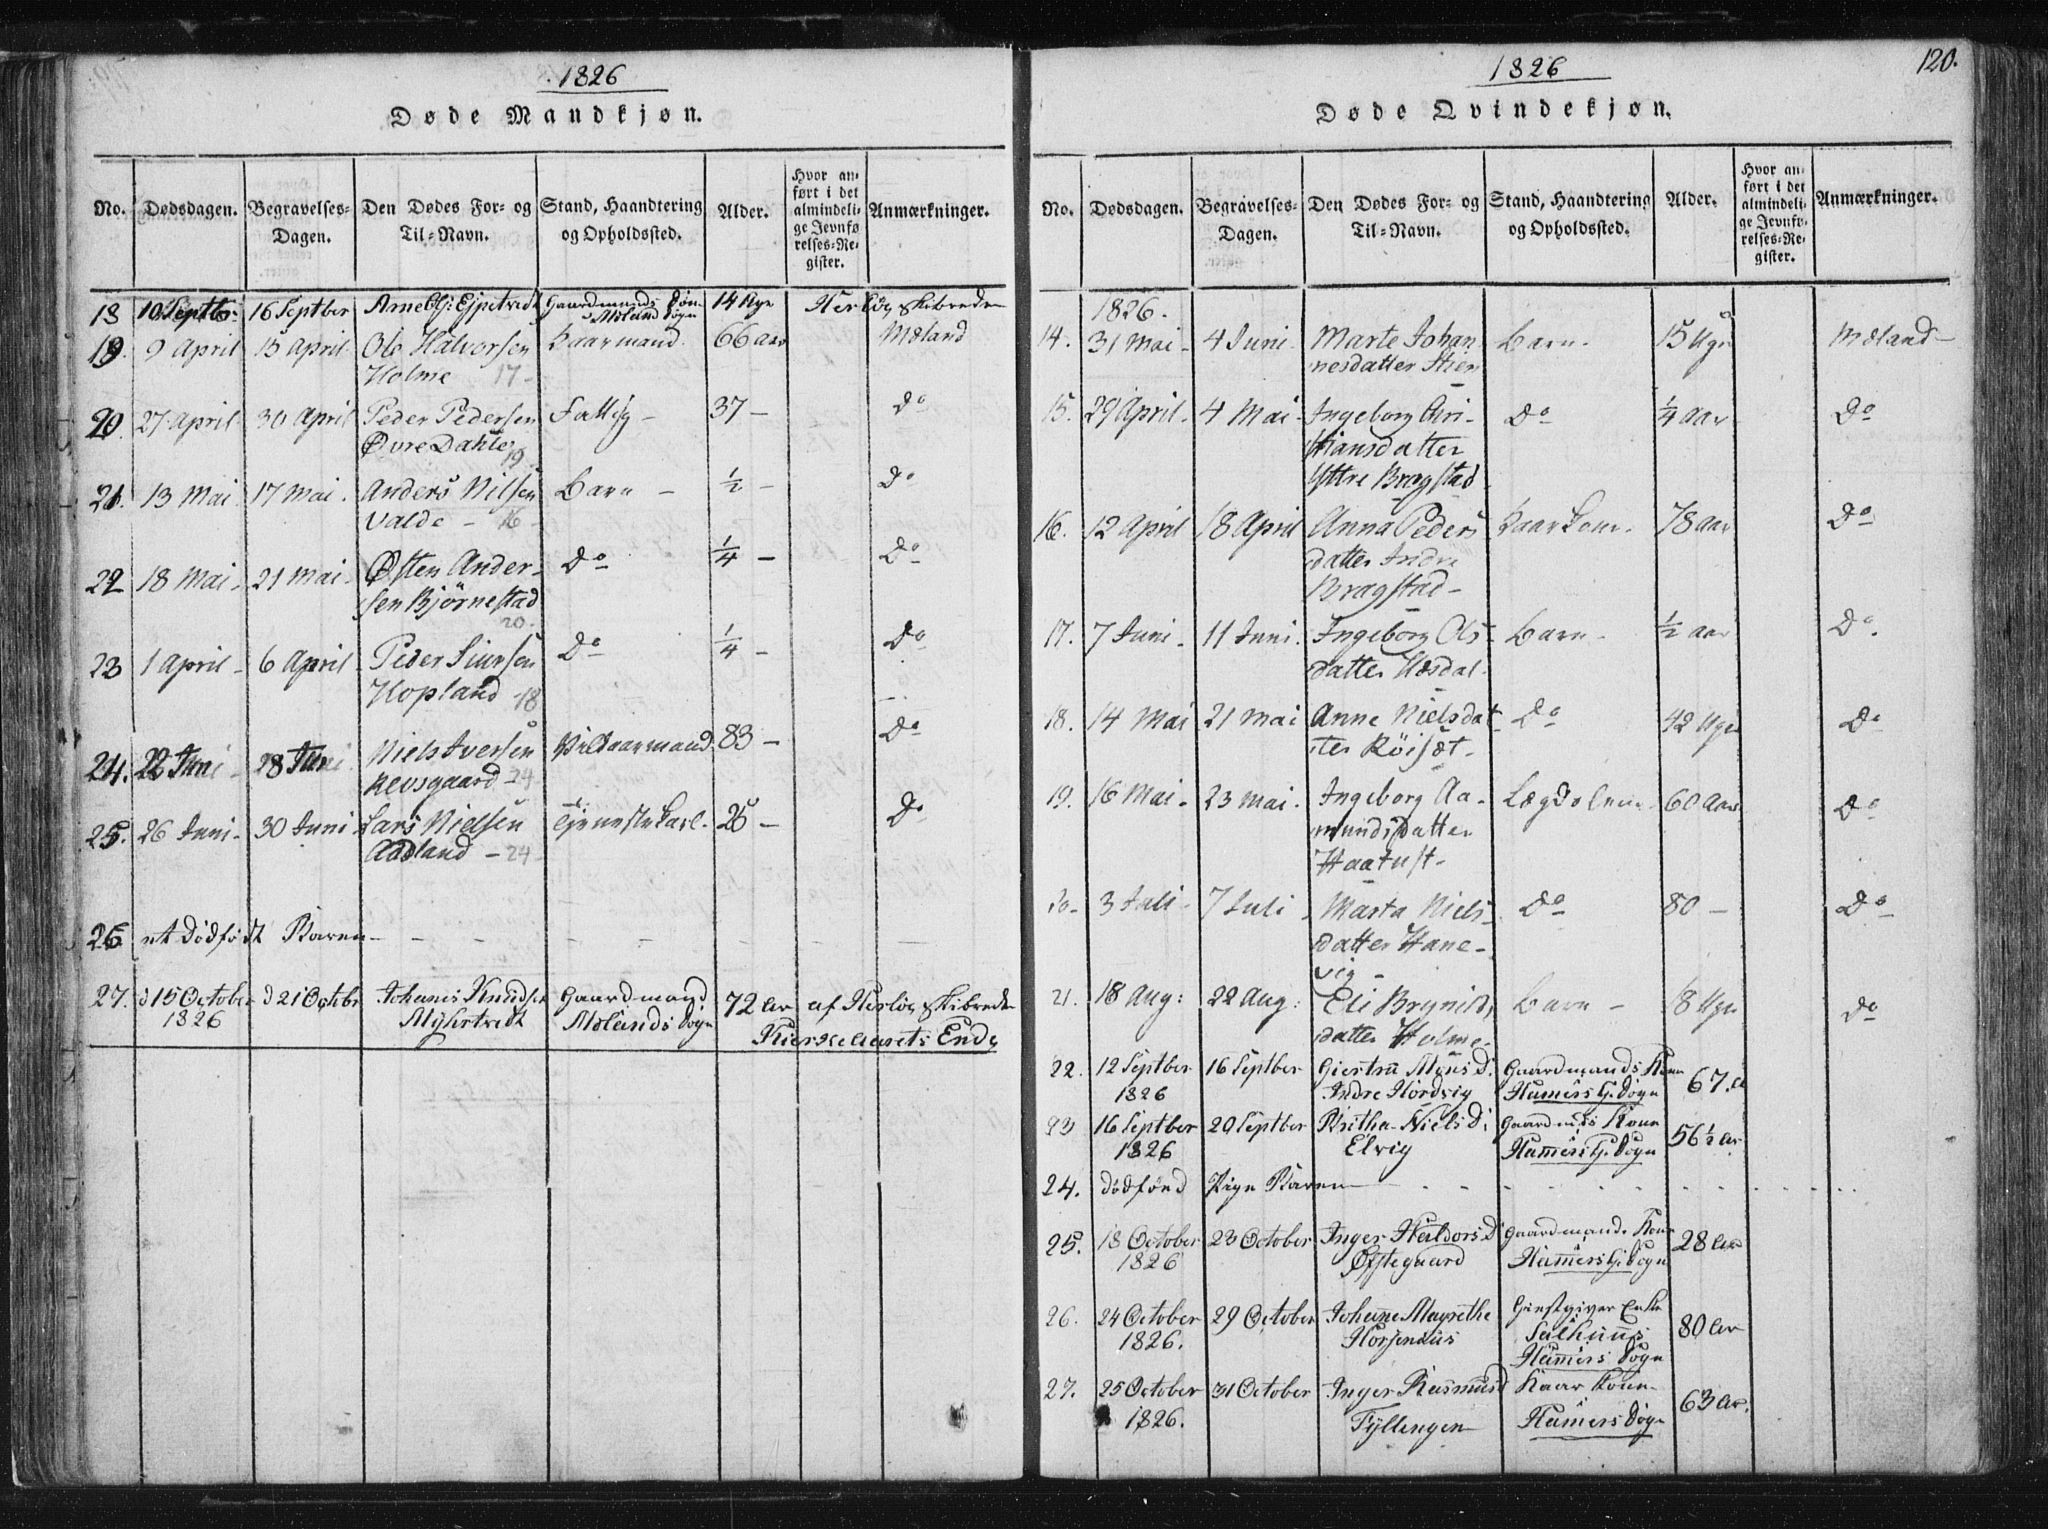 1826
Døde Mandkjøn.
No. Dødsdagen. Begravelses-Dagen. Den Dødes For- og Til-Navn. Stand, Haandtering og Opholdssted. Alder. Hvor anført i det almindelige Jevnførelses-Register. Anmærkninger.
18 10 Septbr: 16 Septber
Gaardmands Søn 14 Uge Herlöe Skibrede
Mølands Sogn
19 9 April 15 April Ole Halvorsen Kaarmand 66 aar Mæland
Holme 17-
20. 27 April 30 April Peder Pedersen Fattig - 37 - Do
Øvre Dahle 19
21. 13 Mai 17 Mai. Anders Nilsen Barn - ½ - Do
Valde - 16
22 18 Mai - 21 Mai - Østen Ander- Do ¼ - Do
sen Bjørnestad
20.
23 1 April - 6 April Peder Siursen Do ¼ - Do
Hopland 18
24. 22 Juni - 28 Juni Niels Iversen 83 - Do
24
25. 26 Juni - 30 Juni Lars Nielsen Tjenestekarl. 26 - Do
Aadland - 24
26 et dödfödt Barn - - -
27. d 15 October d 21 Octbr Johanes Knudsen Gaardmand 72 Ar af Herlöe Skibrede
1826 Myhrtvedt Mølands Sogn
Kierkeaarets Ende
1826 120.
Døde Qvindekjøn.
No. Dødsdagen. Begravelses-Dagen. Den Dødes For- og Til-Navn. Stand, Haandtering og Opholdssted. Alder. Hvor anført i det almindelige Jevnførelses-Register. Anmærkninger.
1826.
14. 31 Mai - 4 Juni Marte Johan Barn 15 Uger Mæland -
nesdatter
15. 29 April - 4 Mai - Ingeborg Chri- Do ¼ aar Do
stiansdatter
Yttre Bragstad
16. 12 April 18 April Anna Peders Kaarkone 78 aar Do
datter Indre
Bragstad -
17. 7 Juni - 11 Juni. Ingeborg Ols- Barn - ½ aar Do
datter
18. 14 Mai 21 Mai Anne Nielsdat Do 42 Uger Do
ter Röisæt -
19. 16 Mai - 23 Mai. Ingeborg Aa- Lægdslem 60 Aar Do
mundsdatter
Haatuft -
20- 3 Juli - 7 Juli Marta Niels Do 80 - Do
datter Hane-
vig -
21. 18 Aug: 22 Aug: Eli Brynilds Barn - 18 Uger Do
datter Holme -
22. 12 Septber 16 Septber Giertru Monsd. Gaardmands Kone 67. Ar
1826 Indre Hordvig Hamers G. Sogn
23 16 Septber 20 Septber Britha Niels D: Gaardmds Kone 56½ Ar
1826 Elvig Hamers G. Sogn
24. dödfönd Pige Barn - - -
25. 18 October 23 October Inger Haldors D Gaardmands Kone 28 Ar
1826 Øfstegaard Hamers G. Sogn
26. 24 October 29 October Johanne Magrethe Giestgiver Enke 80 Ar
1826. Horsenius Salhuus
Hamers Sogn
27. 25 October 31 October Inger Rasmusd Kaar Kone 63 Ar.
1826. Fyllingen Hamers Sogn